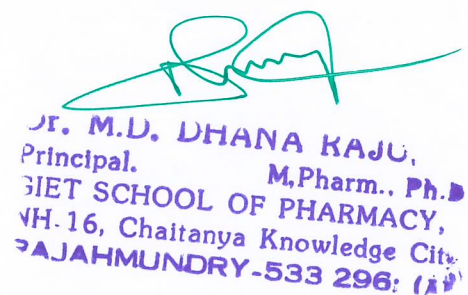 Dr. M.D. DHANA RAJU,
Principal. M,Pharm., Ph.D
GIET SCHOOL OF PHARMACY,
NH-16, Chaitanya Knowledge City
RAJAHMUNDRY-533 296; (AP)